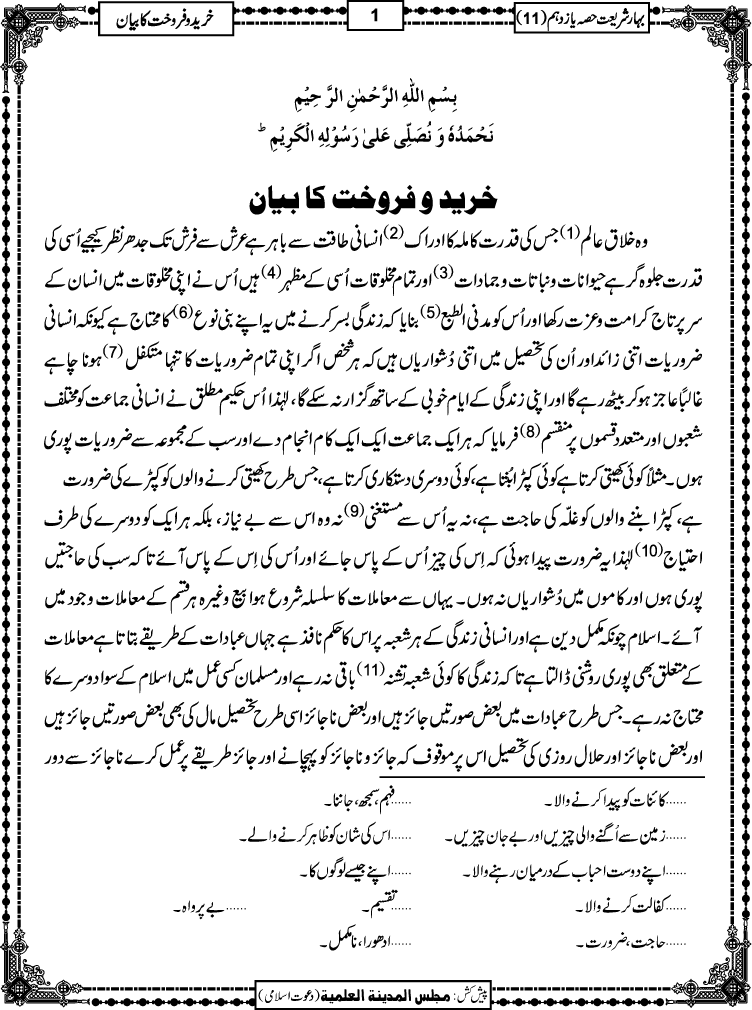 بہار شریعت حصہ یازدہم (11)
1
خرید و فروخت کا بیان
بِسْمِ اللهِ الرَّحْمٰنِ الرَّحِیْمِ
نَحْمَدُہٗ وَ نُصَلِّی عَلیٰ رَسُوْلِهِ الْکَرِیْمِ ؕ
خرید و فروخت کا بیان
وہ خلاق عالم (1) جس کی قدرت کاملہ کا ادراک (2) انسانی طاقت سے باہر ہے عرش سے فرش تک جدھر نظر کیجیے اُسی کی
قدرت جلوہ گر ہے حیوانات و نباتات و جمادات (3) اور تمام مخلوقات اُسی کے مظہر (4) ہیں اُس نے اپنی مخلوقات میں انسان کے
سر پر تاج کرامت و عزت رکھا اور اُس کو مدنی الطبع (5) بنایا کہ زندگی بسر کرنے میں یہ اپنے بنی نوع (6) کا محتاج ہے کیونکہ انسانی
ضروریات اتنی زائد اور اُن کی تحصیل میں اتنی دُشواریاں ہیں کہ ہر شخص اگر اپنی تمام ضروریات کا تنہا متکفل (7) ہونا چاہے
غالباً عاجز ہو کر بیٹھ رہے گا اور اپنی زندگی کے ایام خوبی کے ساتھ گزار نہ سکے گا، لہٰذا اُس حکیم مطلق نے انسانی جماعت کو مختلف
شعبوں اور متعدد قسموں پر منقسم (8) فرمایا کہ ہر ایک جماعت ایک ایک کام انجام دے اور سب کے مجموعہ سے ضروریات پوری
ہوں۔ مثلاً کوئی کھیتی کرتا ہے کوئی کپڑا بُنتا ہے، کوئی دوسری دستکاری کرتا ہے، جس طرح کھیتی کرنے والوں کو کپڑے کی ضرورت
ہے، کپڑا بننے والوں کو غلّہ کی حاجت ہے، نہ یہ اُس سے مستغنی (9) نہ وہ اس سے بے نیاز، بلکہ ہر ایک کو دوسرے کی طرف
احتیاج (10) لہٰذا یہ ضرورت پیدا ہوئی کہ اِس کی چیز اُس کے پاس جائے اور اُس کی اِس کے پاس آئے تاکہ سب کی حاجتیں
پوری ہوں اور کاموں میں دُشواریاں نہ ہوں۔ یہاں سے معاملات کا سلسلہ شروع ہوا بیع وغیرہ ہر قسم کے معاملات وجود میں
آئے۔ اسلام چونکہ مکمل دین ہے اور انسانی زندگی کے ہر شعبہ پر اس کا حکم نافذ ہے جہاں عبادات کے طریقے بتاتا ہے معاملات
کے متعلق بھی پوری روشنی ڈالتا ہے تاکہ زندگی کا کوئی شعبہ تشنہ (11) باقی نہ رہے اور مسلمان کسی عمل میں اسلام کے سوا دوسرے کا
محتاج نہ رہے۔ جس طرح عبادات میں بعض صورتیں جائز ہیں اور بعض ناجائز اسی طرح تحصیل مال کی بھی بعض صورتیں جائز ہیں
اور بعض ناجائز اور حلال روزی کی تحصیل اس پر موقوف کہ جائز و ناجائز کو پہچانے اور جائز طریقے پر عمل کرے ناجائز سے دور
......کائنات کو پیدا کرنے والا۔ ......فہم، سمجھ، جاننا۔
......زمین سے اُگنے والی چیزیں اور بے جان چیزیں۔ ......اس کی شان کو ظاہر کرنے والے۔
......اپنے دوست احباب کے درمیان رہنے والا۔ ......اپنے جیسے لوگوں کا۔
......کفالت کرنے والا۔ ......تقسیم۔ ......بے پرواہ۔
......حاجت، ضرورت۔ ......ادھورا، نامکمل۔
پیش کش: مجلس المدینة العلمیة (دعوت اسلامی)